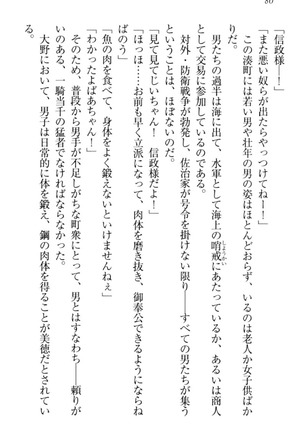 80
「信政様ー！」
「また悪い奴らが出たらやっつけてねー！」
　この湊町には若い男や壮年の男の姿はほとんどおらず、いるのは老人か女子供ばか
りだ。
　男たちの過半は海に出て、水軍として海上の哨戒にあたっているか、あるいは商人
として交易に参加しているのである。
　対外・防衛戦争が勃発し、佐治家が号令を掛けない限り――すべての男たちが集う
ということは、ほぼないのだ。
「見て見てじいちゃん！　信政様だよー！」
「ほっほ……お前も早く立派になって、肉体を磨き抜き、御奉公できるようにならね
ばのう」
「魚の肉を食べて、身体をよく鍛えないといけませんねぇ」
「わかったよばあちゃん！」
　そのため、普段から男手が不足しがちな町衆にとって、男とはすなわち――頼りが
いのある、一騎当千の猛者でなければならなかった。
　大野において、男子は日常的に体を鍛え、鋼の肉体を得ることが美徳だとされてい
る。